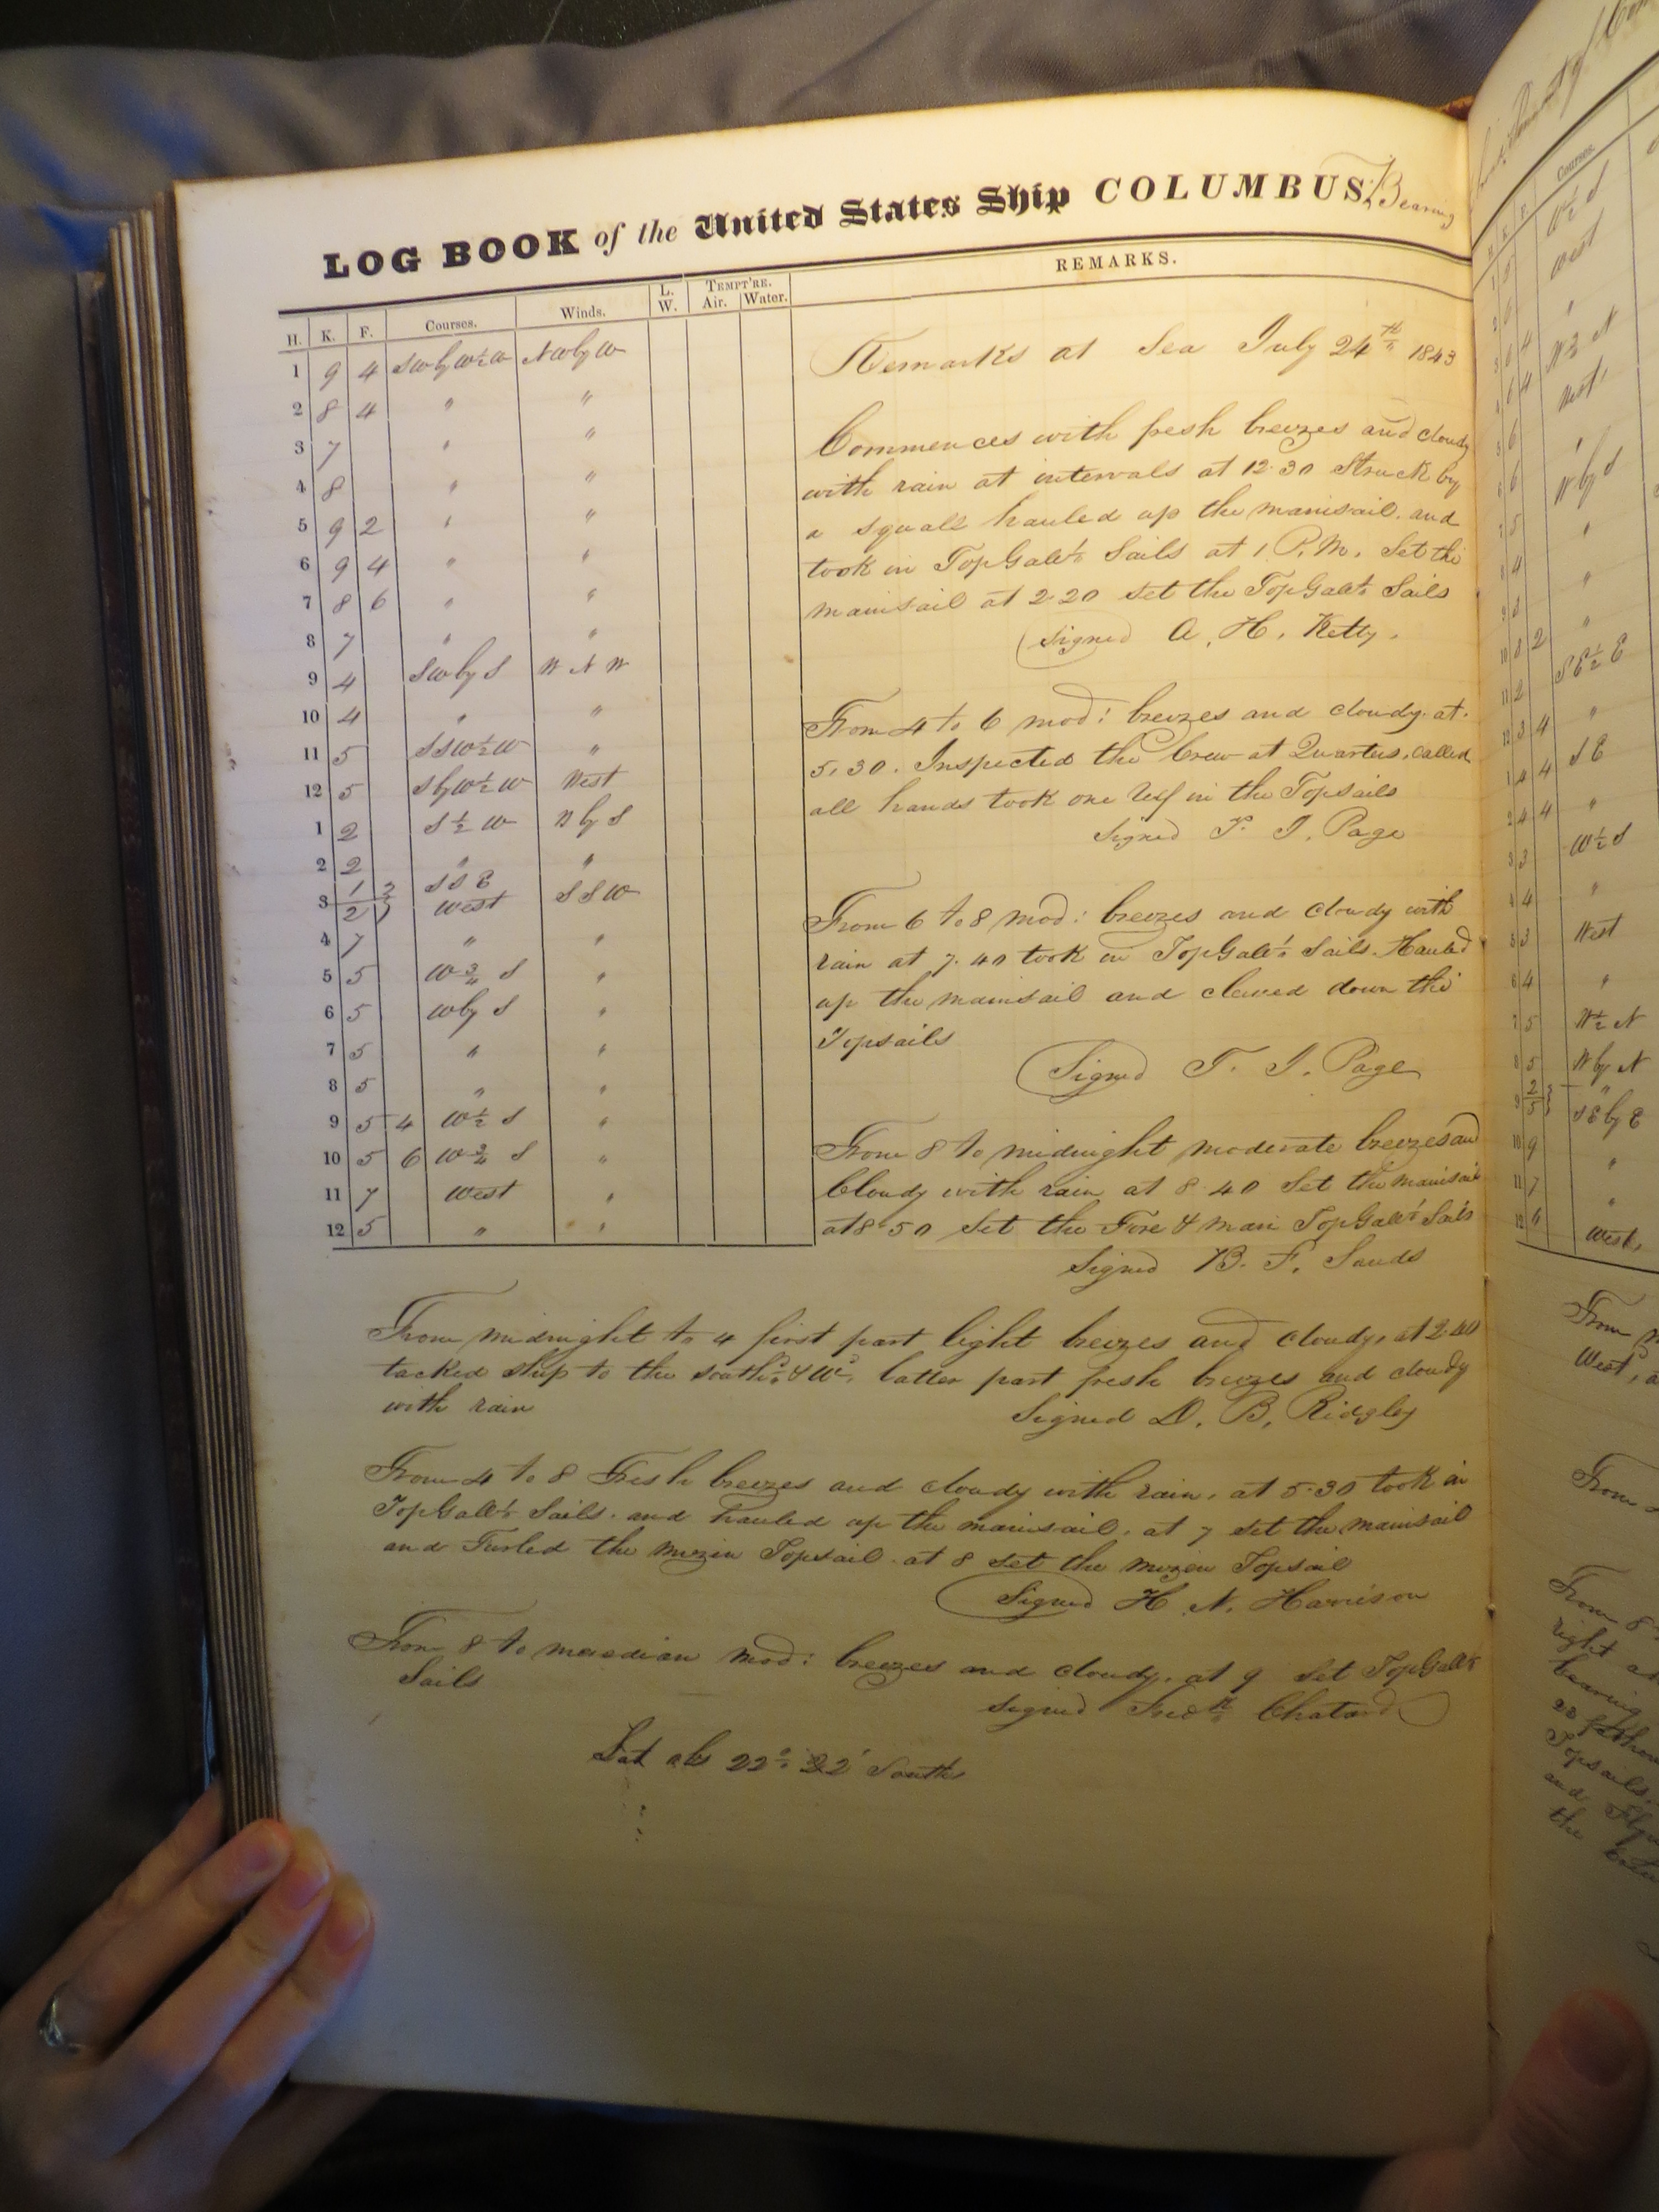 LOG BOOK of the United States Ship COLUMBUS, Bearing
H. K. F. Courses. Winds. L. W. TEMPT'RE. Air. Water. REMARKS.
1 9 4 SWbyW½W NWbyW
2 8 4 " "
3 7 " "
4 8 " "
5 9 2 " "
6 9 4 " "
7 8 6 " "
8 7 " "
9 4 SWbyS WNW
10 4 " "
11 5 SSW½W "
12 5 SbyW½W West
1 2 S½W WbyS
2 2 " "
3 1/2 3/7 SSE West SSW
4 7 " "
5 5 W¾S "
6 5 WbyS "
7 5 " "
8 5 " "
9 5 4 W½S "
10 5 6 W¾S "
11 7 West "
12 5 " "
Remarks at Sea July 24th 1843
Commences with fresh breezes and cloudy
with rain at intervals at 12.30 Struck by
a squall hauled up the mainsail. and
took in TopGallt Sails at 1 P.M. Set the
mainsail at 2.20 set the TopGallt Sails
Signed A. H. Kelty.
From 4 to 6 mod: breezes and cloudy. at.
5.30. Inspected the Crew at Quarters. called
all hands took one reef in the Topsails
Signed T. J. Page
From 6 to 8 mod: breezes and cloudy with
rain at 7.40 took in TopGallt Sails. Hauled
up the mainsail and clewed down the
Topsails
Signed T. J. Page
From 8 to midnight moderate breezes and
Cloudy with rain, at 8.40 Set the mainsail
at 8.50 Set the Fore & main TopGallt Sails
Signed B. F. Sands
From midnight to 4 first part light breizes and cloudy, at 2.40
tacked ship to the southd & Wd, latter part fresh breezes and cloudy
with rain
Signed D. B. Ridgley
From 4 to 8 Fresh breezes and cloudy with rain, at 5.30 took in
TopGallt Sails. and hauled up the mainsail. at 7 set the mainsail
and Furled the mizen Topsail. at 8 set the mizen Topsail
Signed H. N. Harrison
From 8 to meredian mod: breezes and cloudy. at 9 set TopGallt
Sails
Signed Fredk Chatard
Lat obs 22° 22' South
Courses.
W½S
West
"
West
"
WbyS
"
"
"
SE½E
"
SE
"
W½S
"
West
"
W½N
WbyN
"
SEbyE
"
"
West
From
West
From
From 8
right
bearing
Topsails
and
the